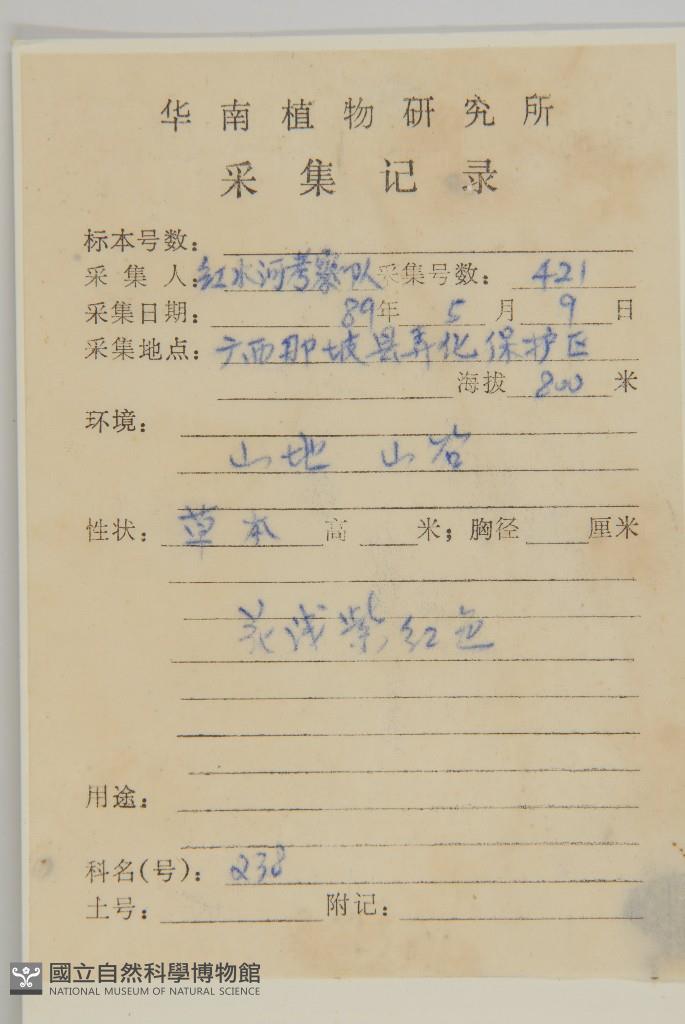 华南植物研究所
采集记录
标本号数：
采集人：红水河考察队 采集号数： 421
采集日期： 89年 5 月 9 日
采集地点：广西那坡县弄化保护区
海拔 800 米
环境：
山地 山谷
性状： 草本 高 米；胸径 厘米
花浅紫红色
用途：
科名(号)： 238
土号： 附记：
國立自然科學博物館
NATIONAL MUSEUM OF NATURAL SCIENCE